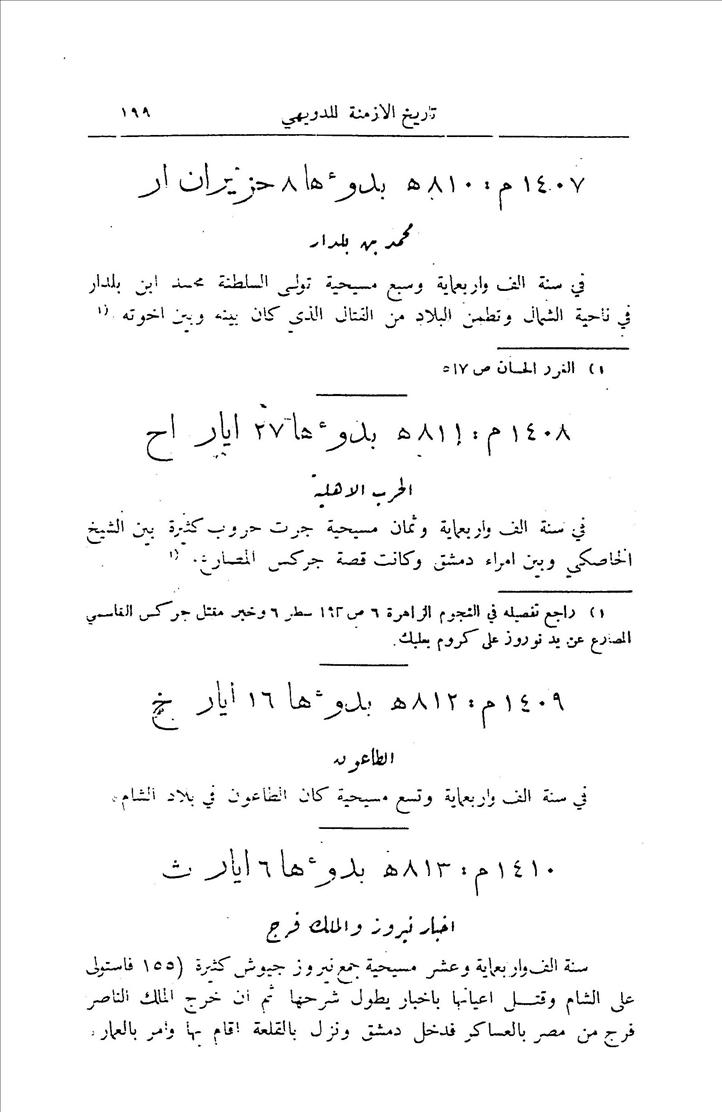 تاريخ الازمنة للدويهي ١٩٩
١٤٠٧ م : ٨١٠ ه بدوءها ٨ حزيران ار
محمد بن بلدار
في سنة الف واربعماية وسبع مسيحية تولى السلطنة محمد ابن بلدار
في ناحية الشمال وتطمن البلاد من القتال الذي كان بينه وبين اخوته (١
١) الغرر الحسان ص ٥١٧
١٤٠٨ م : ٨١١ ه بدوءها ٢٧ ايار اح
الحرب الاهلية
في سنة الف واربعماية وثمان مسيحية جرت حروب كثيرة بين الشيخ
الخاصكي وبين امراء دمشق وكانت قصة جركس المصارع. (١
١) راجع تفصيله في النجوم الزاهرة ٦ ص ١٩٣ سطر ٦ وخبر مقتل جركس القاسمي
المصارع عن يد نوروز على كروم بعلبك.
١٤٠٩ م : ٨١٢ ه بدوءها ١٦ أيار خ
الطاعون
في سنة الف واربعماية وتسع مسيحية كان الطاعون في بلاد الشام.
١٤١٠ م : ٨١٣ ه بدوءها ٦ ايار ث
اخبار نيروز والملك فرج
سنة الف واربعماية وعشر مسيحية جمع نيروز جيوش كثيرة (١٥٥ فاستولى
على الشام وقتل اعيانها باخبار يطول شرحها ثم ان خرج الملك الناصر
فرج من مصر بالعساكر فدخل دمشق ونزل بالقلعة اقام بها وامر بالعمار.